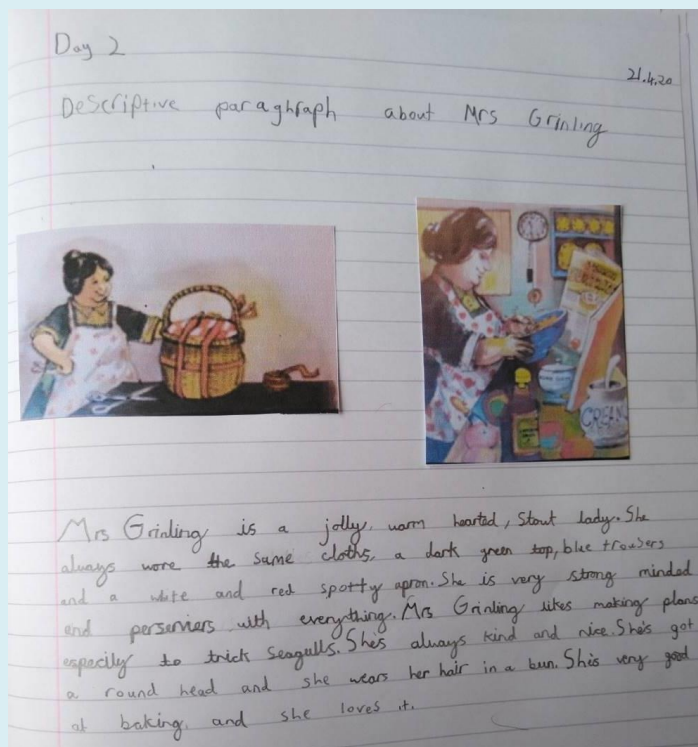 Day 2
21.4.20
Descriptive paraghraph about Mrs Grinling
CREAM
Mrs Grinling is a jolly, warm hearted, stout lady. She
always wore the same cloths, a dark green top, blue trousers
and a white and red spotty apron. She is very strong minded
and perserviers with everything. Mrs Grinling likes making plans
especily to trick seagulls. She's always kind and nice. She's got
a round head and she wears her hair in a bun. She's very good
at baking, and she loves it.